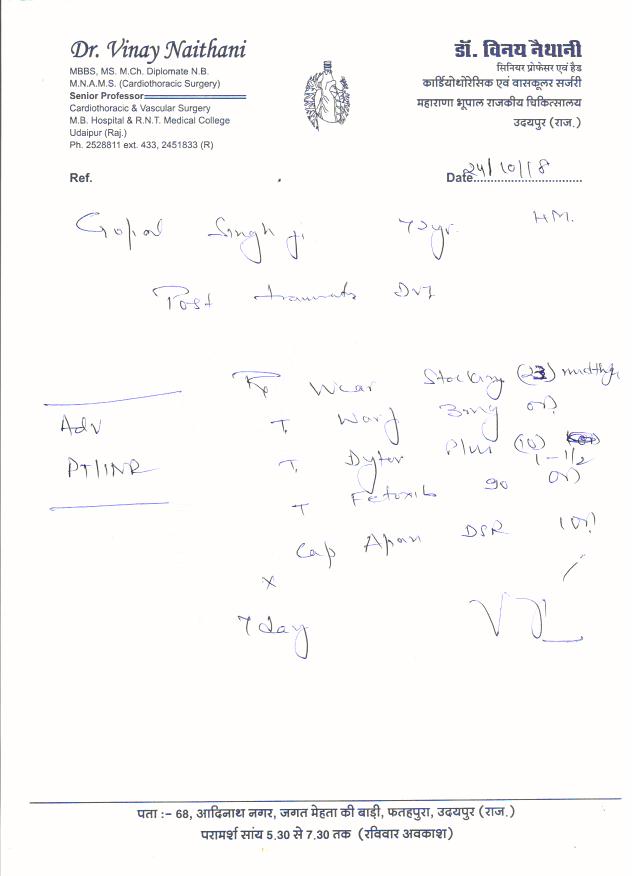 Dr. Vinay Naithani
MBBS, MS. M.Ch. Diplomate N.B.
M.N.A.M.S. (Cardiothoracic Surgery)
Senior Professor
Cardiothoracic & Vascular Surgery
M.B. Hospital & R.N.T. Medical College
Udaipur (Raj.)
Ph. 2528811 ext. 433, 2451833 (R)
डॉ. विनय नैथानी
सिनियर प्रोफेसर एवं हैड
कार्डियोथोरेसिक एवं वासकूलर सर्जरी
महाराणा भूपाल राजकीय चिकित्सालय
उदयपुर (राज.)
Ref.
Date 24/10/18
Gopal Singh ji 72yr. HM.
Post DVT
Rx Wear Stocking
Adv
T. Warf 3mg OD
PT/INR
T. Dytor Plus (10) 1-1/2
T 90 OD
Cap DSR 1 OD
x
7 day
पता :– 68, आदिनाथ नगर, जगत मेहता की बाड़ी, फतहपुरा, उदयपुर (राज.)
परामर्श सांय 5.30 से 7.30 तक (रविवार अवकाश)